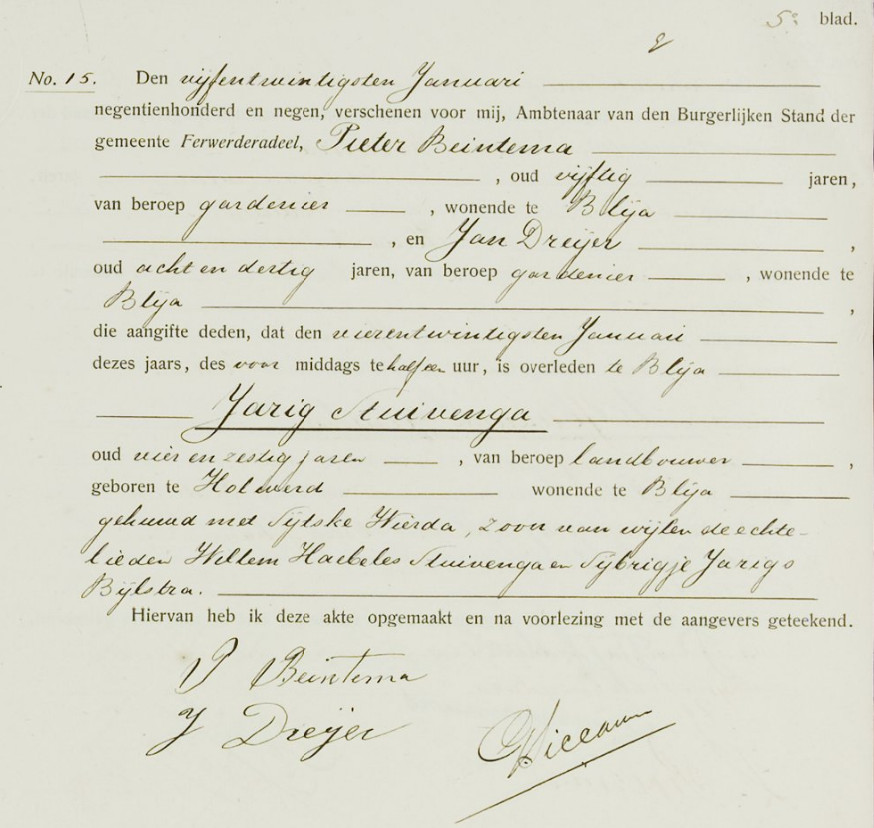 5e blad.
No. 15. Den vijfentwintigsten Januari
negentienhonderd en negen, verschenen voor mij, Ambtenaar van den Burgerlijken Stand der
gemeente Ferwerderadeel, Pieter Beintema
, oud vijftig jaren,
van beroep gardenier , wonende te Blija
, en Jan Dreijer ,
oud acht en dertig jaren, van beroep gardenier , wonende te
Blija ,
die aangifte deden, dat den vierentwintigsten Januari
dezes jaars, des voor middags te half een uur, is overleden te Blija
Jarig Stuivenga
oud vier en zestig jaren , van beroep landbouwer ,
geboren te Holwerd wonende te Blija
gehuwd met Sijtske Wierda, zoon van wijlen de echte-
lieden Willem Haebeles Stuivenga en Sijbrigje Jarigs
Bijlstra.
Hiervan heb ik deze akte opgemaakt en na voorlezing met de aangevers geteekend.
P Beintema
J Dreijer